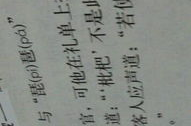 与“琵(pí)琶(pá)”
官，可他在礼单上
道：“‘枇杷’不是此
客人应声道：“若使